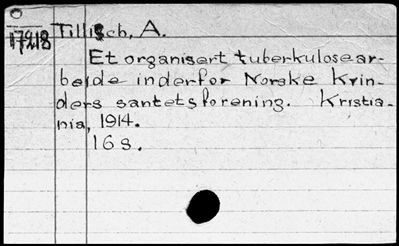 17218 Tillisch, A.
Et organisert tuberkulosear-
beide indenfor Norske Kvin-
ders sanitetsforening. Kristia-
nia, 1914.
16 s.